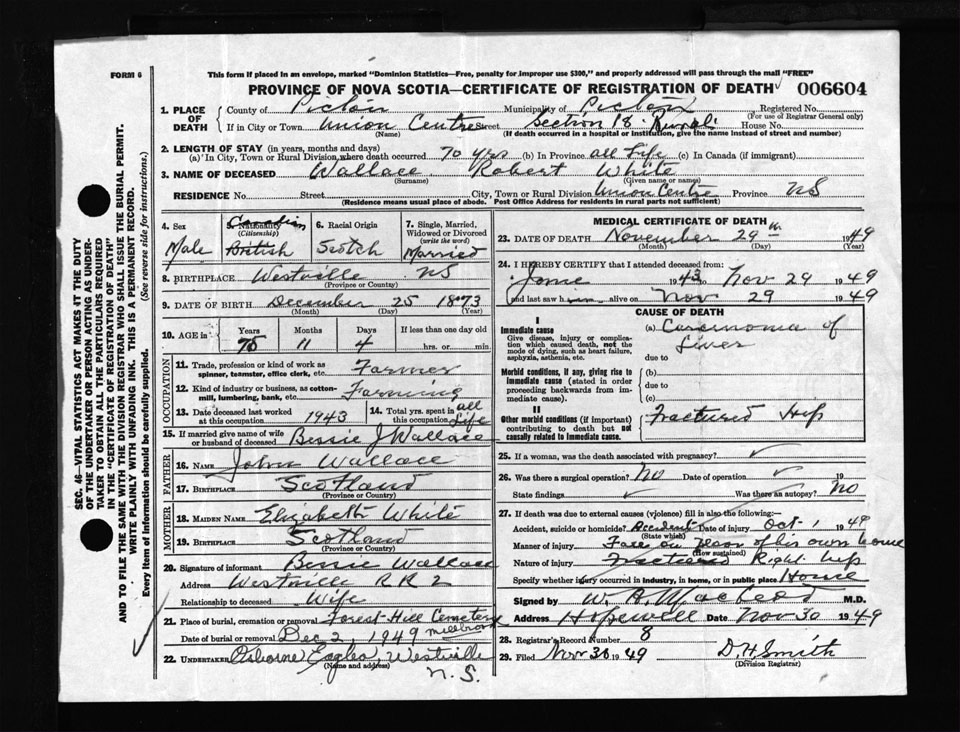 FORM 6
This form if placed in an envelope, marked "Dominion Statistics—Free, penalty for improper use $300," and properly addressed will pass through the mail "FREE"
PROVINCE OF NOVA SCOTIA—CERTIFICATE OF REGISTRATION OF DEATH 006604
1. PLACE OF DEATH
County of Pictou Municipality of Pictou Registered No.
(For use of Registrar General only)
If in City or Town Union Centre Street Section 18 - Rural House No.
(Name) (If death occurred in a hospital or institution, give the name instead of street and number)
2. LENGTH OF STAY (in years, months and days)
(a) In City, Town or Rural Division where death occurred 70 yrs (b) In Province all Life (c) In Canada (if immigrant)
3. NAME OF DECEASED Wallace Robert White
(Surname) (Given name or names)
RESIDENCE No. Street City, Town or Rural Division Union Centre Province NS
(Residence means usual place of abode. Post Office Address for residents in rural parts not sufficient)
4. Sex
Male
5. Nationality
(Citizenship)
Canadian
British
6. Racial Origin
Scotch
7. Single, Married, Widowed or Divorced
(write the word)
Married
8. BIRTHPLACE Westville NS
(Province or Country)
9. DATE OF BIRTH December 25 1873
(Month) (Day) (Year)
10. AGE in
Years Months Days If less than one day old
75 11 4 hrs. or min.
OCCUPATION
11. Trade, profession or kind of work as spinner, teamster, office clerk, etc. Farmer
12. Kind of industry or business, as cotton-mill, lumbering, bank, etc. Farming
13. Date deceased last worked at this occupation 1943
14. Total yrs. spent in this occupation all Life
15. If married give name of wife or husband of deceased Bessie J Wallace
FATHER
16. NAME John Wallace
17. BIRTHPLACE Scotland
(Province or Country)
MOTHER
18. MAIDEN NAME Elizabeth White
19. BIRTHPLACE Scotland
(Province or Country)
20. Signature of informant Bessie Wallace
Address Westville RR 2
Relationship to deceased Wife
21. Place of burial, cremation or removal Forest Hill Cemetery
Millbrook
Date of burial or removal Dec 2, 1949
22. UNDERTAKER Osborne Eagles, Westville
(Name and address)
N.S.
MEDICAL CERTIFICATE OF DEATH
23. DATE OF DEATH November 29th 1949
(Month) (Day) (Year)
24. I HEREBY CERTIFY that I attended deceased from:
1943 to Nov 29 1949
and last saw him alive on Nov 29 1949
CAUSE OF DEATH
I
Immediate cause
Give disease, injury or complication which caused death, not the mode of dying, such as heart failure, asphyxia, asthenia, etc.
(a) Carcinoma of
Liver
due to
Morbid conditions, if any, giving rise to immediate cause (stated in order proceeding backwards from immediate cause).
(b)
due to
(c)
II
Other morbid conditions (if important) contributing to death but not causally related to immediate cause.
Fractured Hip
25. If a woman, was the death associated with pregnancy?
26. Was there a surgical operation? No Date of operation 19
State findings Was there an autopsy? No
27. If death was due to external causes (violence) fill in also the following:—
Accident, suicide or homicide? Accident Date of injury Oct 1 1949
(State which)
Manner of injury on floor of his own home
(How sustained)
Nature of injury Fractured Right hip
Specify whether injury occurred in industry, in home, or in public place Home
Signed by W. A. MacLeod M.D.
Address Hopewell Date Nov 30 1949
28. Registrar's Record Number 8
29. Filed Nov 30 1949 D. H. Smith
(Division Registrar)
SEC. 46—VITAL STATISTICS ACT MAKES IT THE DUTY
OF THE UNDERTAKER OR PERSON ACTING AS UNDER-
TAKER TO OBTAIN ALL THE PARTICULARS REQUIRED
IN THE "CERTIFICATE OF REGISTRATION OF DEATH"
AND TO FILE THE SAME WITH THE DIVISION REGISTRAR WHO SHALL ISSUE THE BURIAL PERMIT.
WRITE PLAINLY WITH UNFADING INK. THIS IS A PERMANENT RECORD.
Every item of information should be carefully supplied. (See reverse side for instructions.)